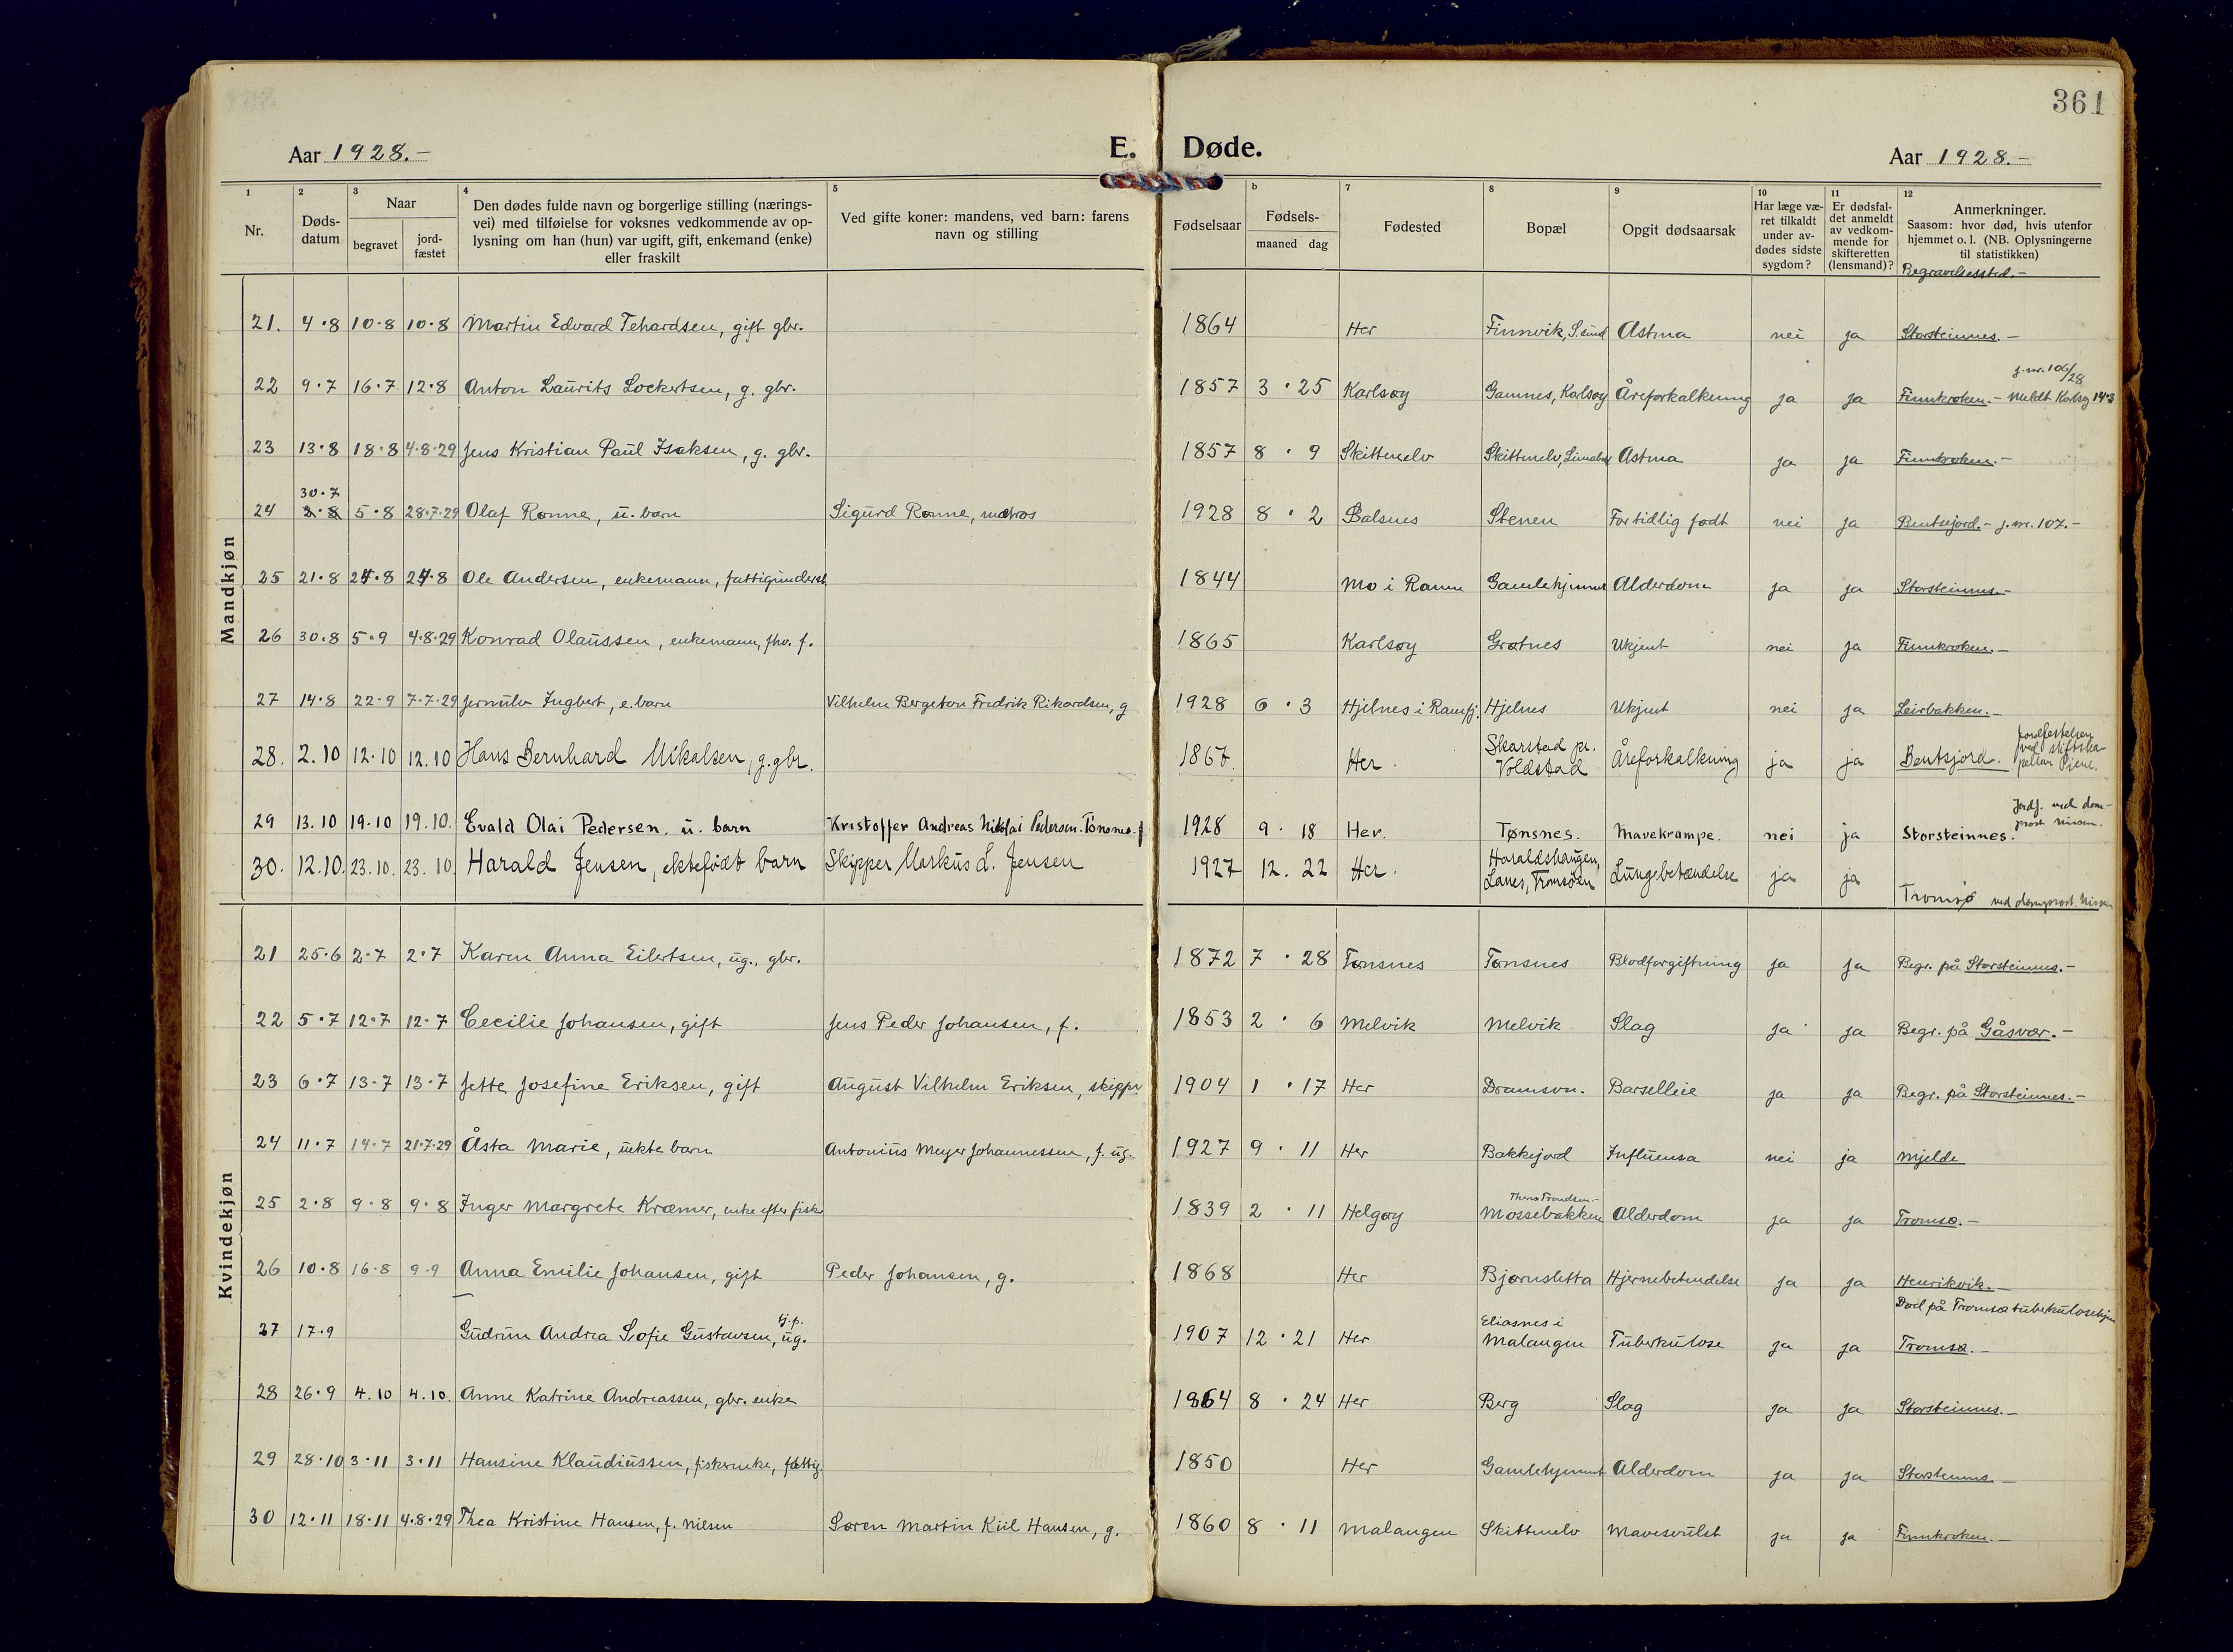 361
Aar 1928.- E. Døde. Aar 1928.-
1 2 3 4 5 b 7 8 9 10 11 12
Nr.
Døds-
datum
Naar
begravet
jord-
fæstet
Den dødes fulde navn og borgerlige stilling (nærings-
vei) med tilføielse for voksnes vedkommende av op-
lysning om han (hun) var ugift, gift, enkemand (enke)
eller fraskilt
Ved gifte koner: mandens, ved barn: farens
navn og stilling
Fødselsaar
Fødsels-
maaned dag
Fødested
Bopæl
Opgit dødsaarsak
Har læge væ-
ret tilkaldt
under av-
dødes sidste
sygdom?
Er dødsfal-
det anmeldt
av vedkom-
mende for
skifteretten
(lensmand)?
Anmerkninger.
Saasom: hvor død, hvis utenfor
hjemmet o. l. (NB. Oplysningerne
til statistikken)
Begravelsessted.-
Mandkjøn
21. 4·8 10·8 10·8 Martin Edvard Tehardsen, gift gbr. 1864 Her Finnvik, S.sund Astma nei ja Storsteinnes.-
j.nr. 106/28
22 9·7 16·7 12·8 Anton Laurits Lockertsen, g. gbr. 1857 3·25 Karlsøy Gamnes, Karlsøy Åreforkalkning ja ja Finnkroken.- Meldt Karlsøy 14·3
23 13·8 18·8 4·8·29 Jens Kristian Paul Isaksen, g. gbr. 1857 8·9 Skittenelv Skittenelv, Astma ja ja Finnkroken.-
30·7
24 2·8 5·8 28·7·29 Olaf Rønne, u. barn Sigurd Rønne, matros 1928 8·2 Balsnes Stenen For tidlig født nei ja Bentsjord.- j.nr. 107.-
25 21·8 27·8 27·8 Ole Andersen, enkemann, fattigunderst. 1844 Mo i Ranen Gamlehjemmet Alderdom ja ja Storsteinnes.-
26 30·8 5·9 4·8·29 Konrad Olaussen, enkemann, fhv. f. 1865 Karlsøy Grøtnes Ukjent nei ja Finnkroken.-
27 14·8 22·9 7·7·29 Jernulv Ingbert, e. barn Vilhelm Bergeton Fredrik Rikardsen, g 1928 6·3 Hjelnes i Ramfj. Hjelnes Ukjent nei ja Leirbakken.-
28. 2.10 12·10 12.10 Hans Bernhard Mikalsen, g. gbr. 1867. Her. Skarstad pr. Voldstad Åreforkalkning ja ja Bentsjord. jordfestelsen ved stiftska- pellan
29 13.10 19·10 19.10. Evald Olai Pedersen. u. barn Kristoffer Andreas Nikolai Pedersen. Tønsnes. f 1928 9·18 Her. Tønsnes. Mavekrampe. nei ja Storsteinnes. Jordf. ved dom- prost Nissen.
30. 12.10. 23.10. 23.10. Harald Jensen, ektefødt barn Skipper Markus L. Jensen 1927 12.22 Her. Haraldshaugen, Lanes, Tromsøen Lungebetændelse ja ja Tromsø ved domprost Nissen
Kvindekjøn
21 25·6 2·7 2·7 Karen Anna Eilertsen, ug., gbr. 1872 7·28 Tønsnes Tønsnes Blodforgiftning ja ja Begr. på Storsteinnes.-
22 5·7 12·7 12·7 Cecilie Johansen, gift Jens Peder Johansen, f. 1853 2·6 Melvik Melvik Slag ja ja Begr. på Gåsvær.-
23 6·7 13·7 13·7 Jette Josefine Eriksen, gift August Vilhelm Eriksen, skipper 1904 1·17 Her Dramsvn. Barselleie ja ja Begr. på Storsteinnes.-
24 11·7 14·7 21·7·29 Åsta Marie, uekte barn Antonius Meyer Johannessen, f. ug. 1927 9·11 Her Bakkejord Influensa nei ja Mjelde
25 2·8 9·8 9·8 Inger Margrete Kræmer, enke efter fisker 1839 2·11 Helgøy Thens Trondsen.- Mossebakken Alderdom ja ja Tromsø.-
26 10·8 16·8 9·9 Anna Emilie Johansen, gift Peder Johansen, g. 1868 Her Bjørnsletta Hjernebetendelse ja ja Henrikvik.-
27 17·9 Gudrun Andrea Sofie Gustavsen, tj.p. ug. 1907 12·21 Her Eliasnes i Malangen Tuberkulose ja ja Død på Tromsø tuberkulosehjem Tromsø.-
28 26·9 4.10 4.10. Anne Katrine Andreassen, gbr. enke 1864 8·24 Her Berg Slag ja ja Storsteinnes.-
29 28·10 3·11 3·11 Hansine Klaudiussen, fiskerenke, fattig. 1850 Her Gamlehjemmet Alderdom ja ja Storsteinnes.-
30 12·11 18·11 4·8·29 Thea Kristine Hansen, f. Nilsen Søren Martin Kiil Hansen, g. 1860 8·11 Malangen Skittenelv Mavesvulst ja ja Finnkroken.-